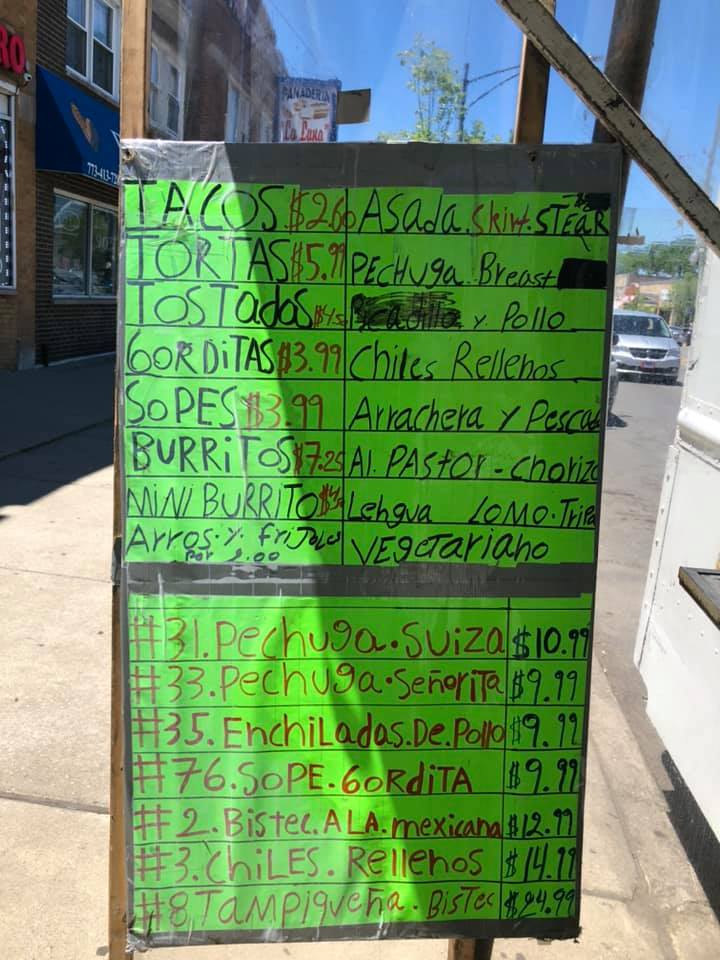 RO
773-413-72
PANADERIA
"La Luna"
TACOS $2.60 Asada. Skirt. STEAR
TORTAS $5.99 PECHUGa. Breast
TOSTadas $4.50 y. Pollo
GORDiTAS $3.99 Chiles Rellenos
SOPES $3.99 Arrachera y Pescad
BURRiTOS $7.25 Al. PAStOr - Chorizo
MiNi BURRiTO Lengua LOMO. Tripa
Arros. y. friJoles VEgeTariano
Por
#31. Pechuga. Suiza $10.99
#33. Pechuga. SeñoriTa $9.99
#35. EnchiLadas. De. Pollo $9.99
#76. SOPE. GORdiTA $9.99
#2. Bistec. A LA. mexicana $12.99
#3. ChiLES. Rellenos $14.99
#8 TAMPiqueña. BisTec $24.99